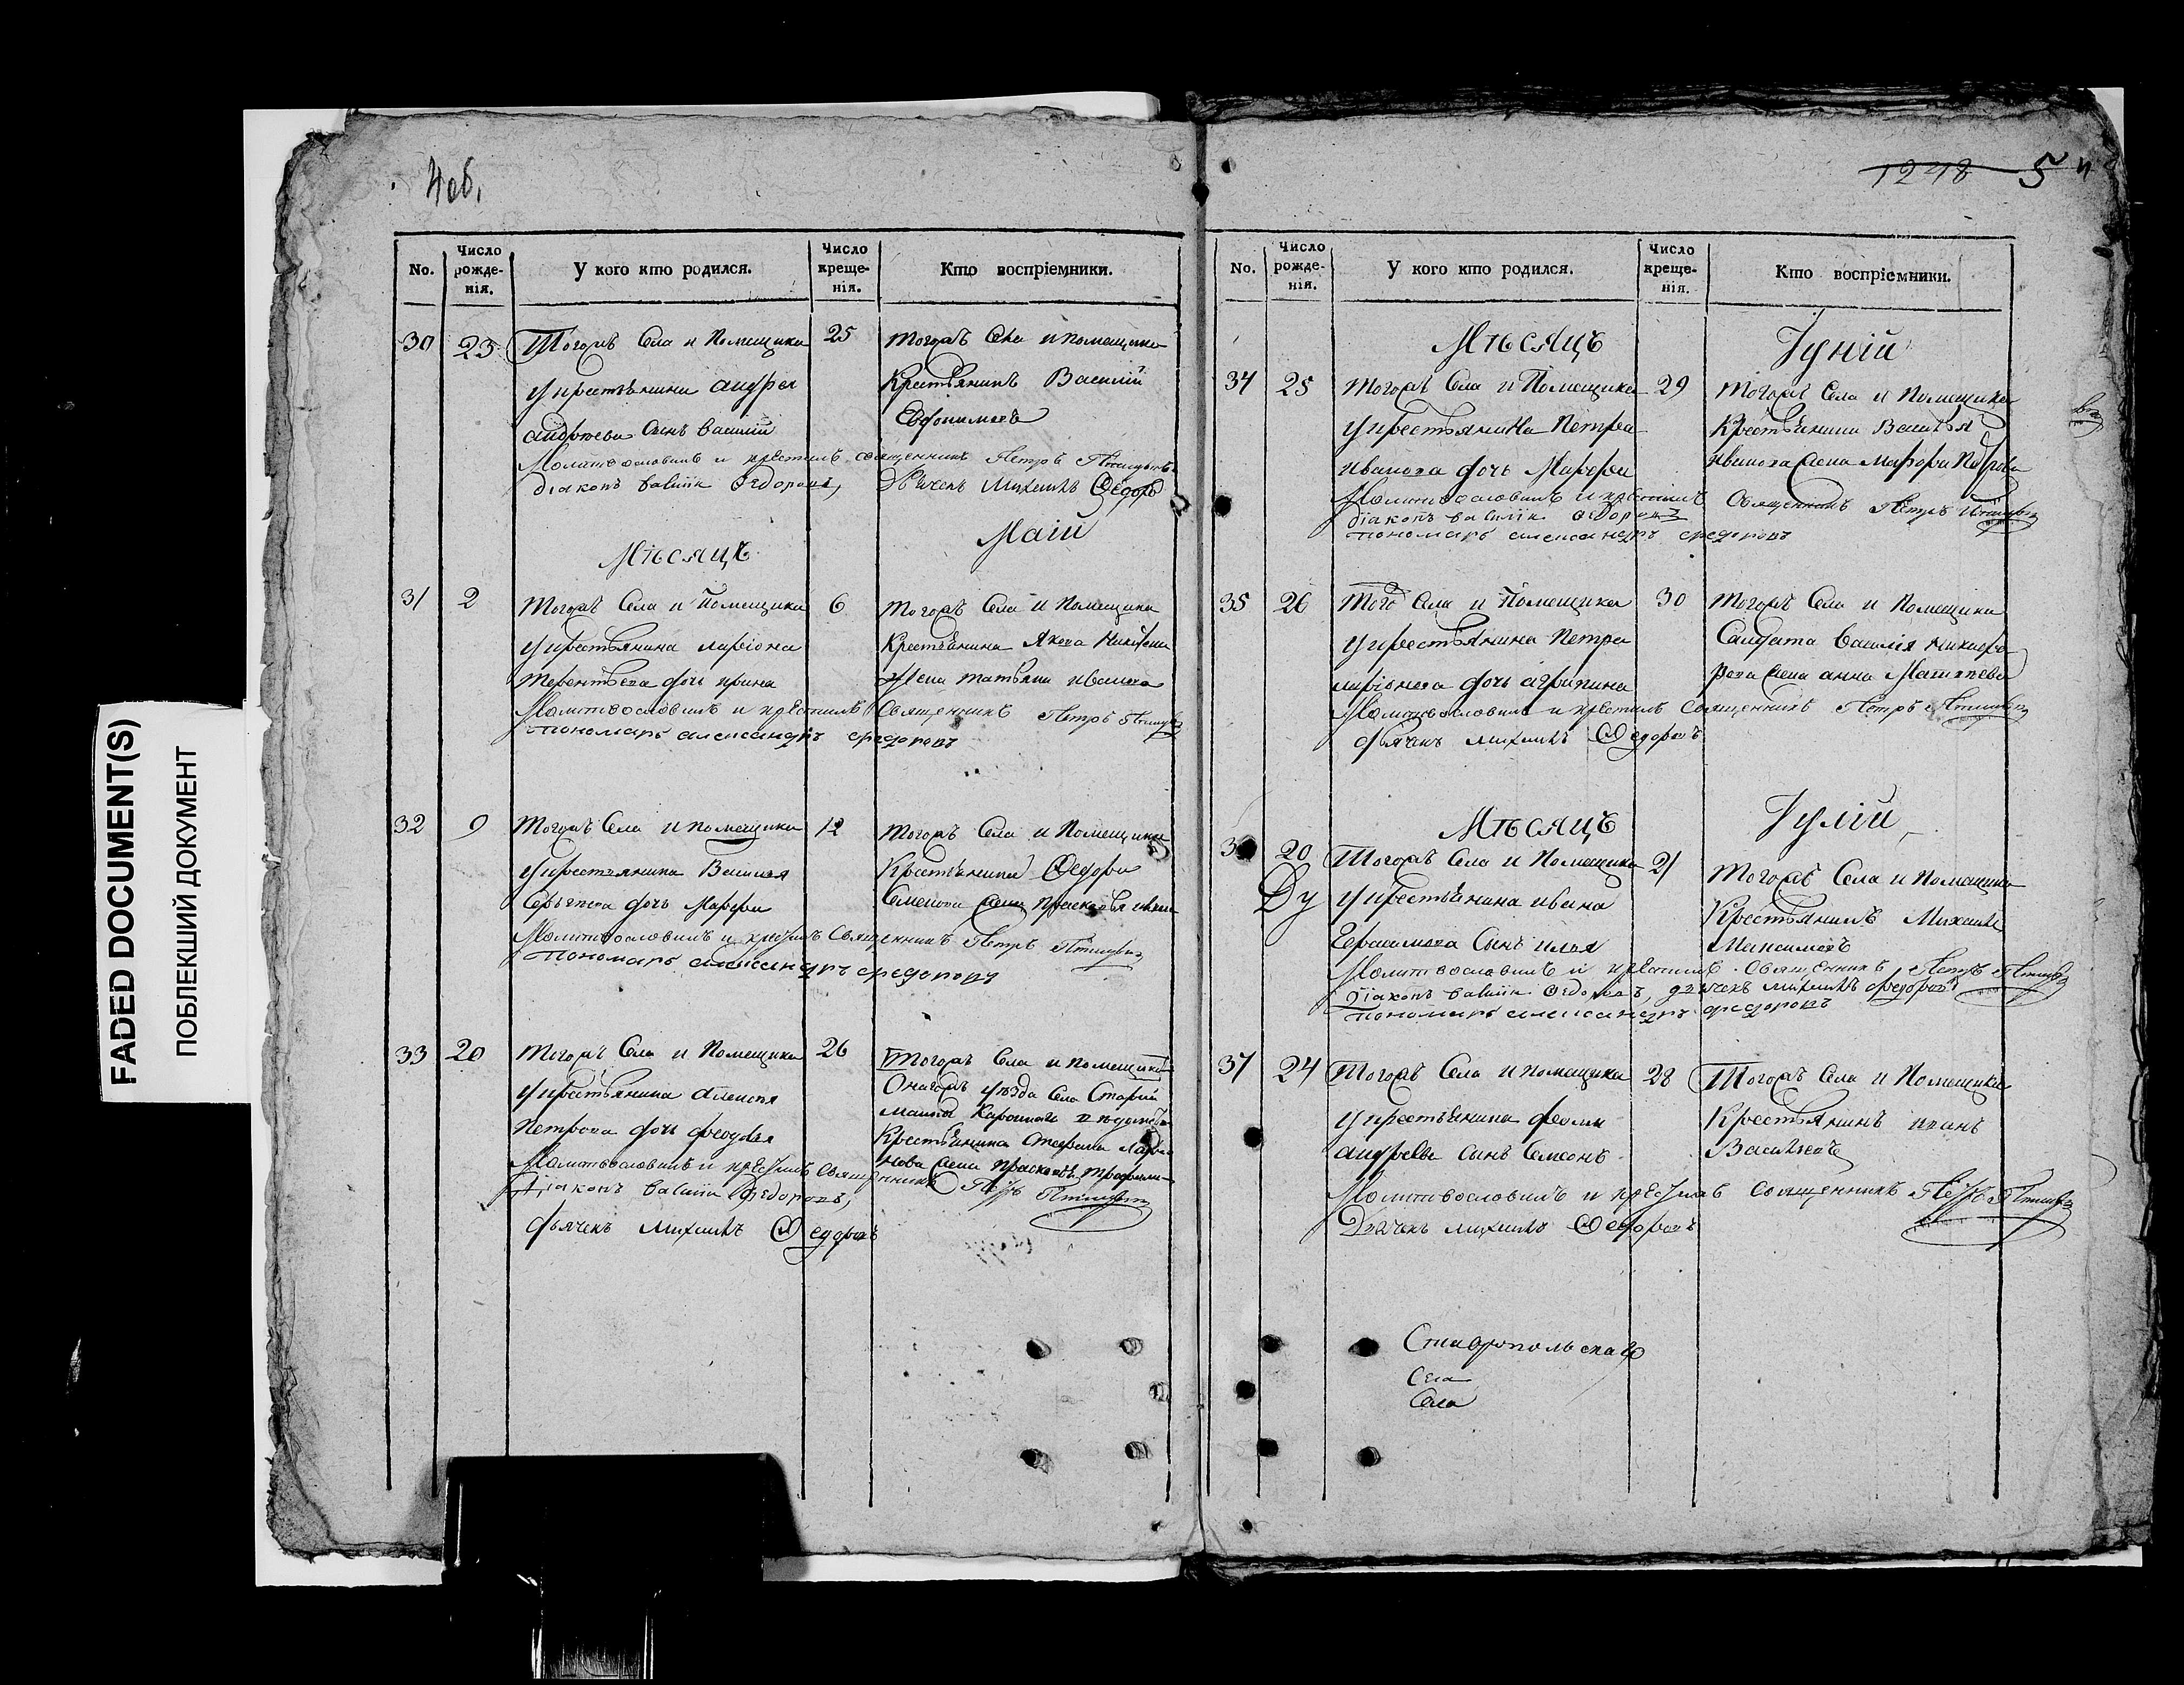 FADED DOCUMENT(S)
ПОБЛЕКШИЙ ДОКУМЕНТ
4 об.
No.
Число рожде-нія.
У кого кто родился.
Число креще-нія.
Кто воспріемники.
30 23 Тогожъ Села и Помещика 25
у крестьянина андрея
андреева Сынъ василий
тогожъ Села и помещика
Крестьянинъ Василий
Евфимовъ
Молитвословилъ и крестилъ священникъ Петръ
діаконъ василіи Ѳедоровъ, Дьячекъ Михаилъ Ѳедоръ
Мѣсяцъ Маій
31 2 Тогожъ Села и Помещика 6
у крестьянина лариона
терентьева дочь ирина
Тогожъ Села и Помещика
Крестьянина Якова Никитина
Жена татьяна иванова
Молитвословилъ и крестилъ Священникъ Петръ
пономарь александръ федоровъ
32 9 Тогожъ Села и помещика 12
у крестьянина Василья
Сергеева дочь Марфа
Тогожъ Села и Помещика
Крестьянина Ѳедора
Семенова Жена прасковья
Молитвословилъ и крестилъ Священникъ Петръ
пономарь александръ федоровъ
33 20 Тогожъ Села и Помещика 26
у крестьянина алексея
Петрова дочь феодосья
Тогожъ Села и помещика
Онагожъ уѣзда Села Старой
маины
Крестьянина Стефана Лари-
нова Жена прасковья трофим-
Молитвословилъ и крестилъ Священникъ Петръ
Діаконъ василіи федоровъ,
дьячекъ михаилъ Ѳедоровъ
1248 5
No.
Число рожде-нія.
У кого кто родился.
Число креще-нія.
Кто воспріемники.
Мѣсяцъ Іуній
34 25 Тогожъ Села и Помещика 29
у крестьянина Петра
иванова дочь Марфа
Тогожъ Села и Помещика
Крестьянина Василья
иванова Жена марфа Петрова
Молитвословилъ и крестилъ Священникъ Петръ
діаконъ василіи Ѳедоровъ
пономарь александръ федоровъ
35 26 Того Села и Помещика 30
у крестьянина Петра
ларіонова дочь агрипина
Тогожъ Села и Помещика
Салдата василія никифо
рова Жена анна Матвѣева
Молитвословилъ и крестилъ Священникъ Петръ
дьячекъ михаилъ Ѳедоровъ
Мѣсяцъ Іулій
20 Тогожъ Села и Помещика 21
у крестьянина ивана
Герасимова Сынъ илья
Тогожъ Села и Помещика
Крестьянинъ Михаила
Максимовъ
Молитвословилъ и крестилъ Священникъ Петръ
діаконъ василіи Ѳедоровъ, дьячекъ михаилъ федоровъ
пономарь александръ федоровъ
37 24 Тогожъ Села и помещика 28
у крестьянина фомы
андреева сынъ Семионъ
Тогожъ Села и Помещика
Крестьянинъ иванъ
Васильевъ
Молитвословилъ и крестилъ Священникъ Петръ
Дьячекъ михаилъ Ѳедоровъ
Ставропольскаго
Села
Села